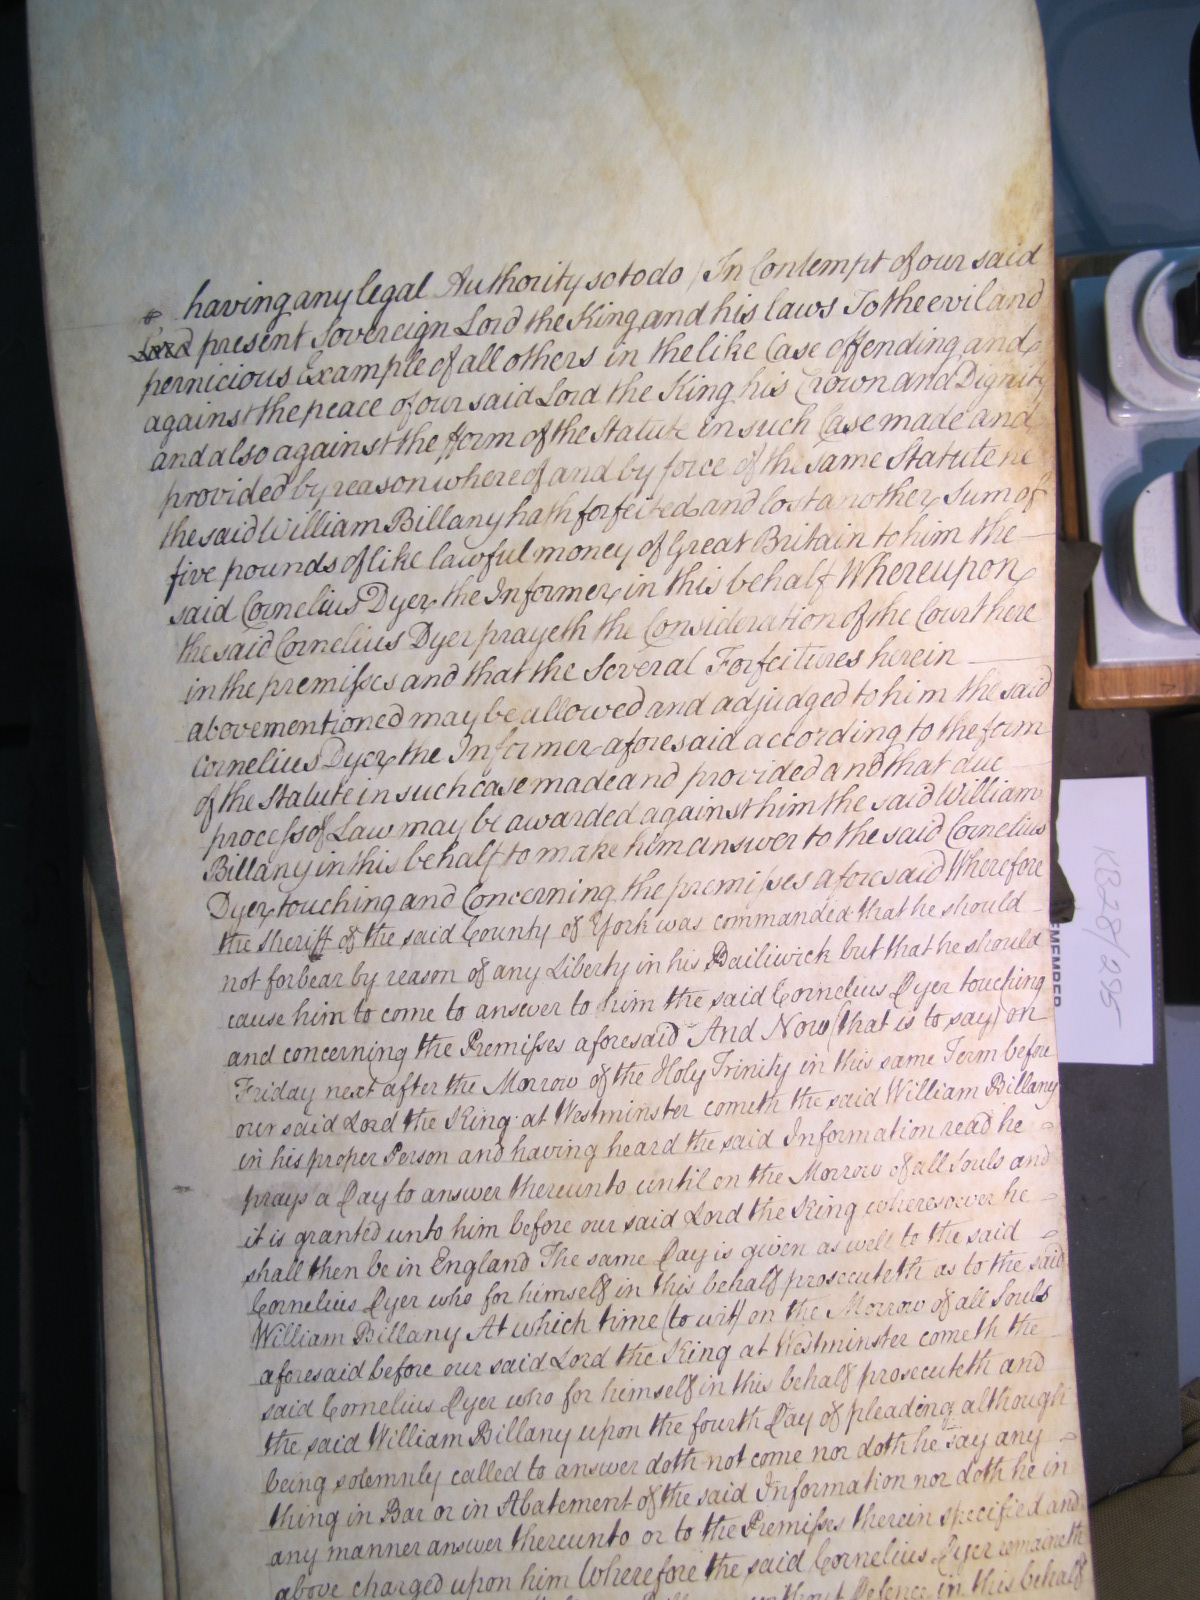 having any legal Authority so to do / In Contempt of our said
Lord present Sovereign Lord the King and his laws To the evil and
pernicious Example of all others in the like Case offending and
against the peace of our said Lord the King his Crown and Dignity
and also against the fform of the Statute in such Case made and
provided by reason whereof and by force of the same Statute he
the said William Billany hath forfeited and lost another Sum of
five pounds of like lawful money of Great Britain to him the
said Cornelius Dyer the Informer in this behalf Whereupon
the said Cornelius Dyer prayeth the Consideration of the Court here
in the premisses and that the Several Forfeitures herein
abovementioned may be allowed and adjudged to him the said
Cornelius Dyer the Informer aforesaid according to the form
of the Statute in such case made and provided and that due
process of Law may be awarded against him the said William
Billany in this behalf to make him answer to the said Cornelius
Dyer touching and Concerning the premisses aforesaid Wherefore
the Sheriff of the said County of York was commanded that he should
not forbear by reason of any Liberty in his Bailiwick but that he should
cause him to come to answer to him the said Cornelius Dyer touching
and concerning the Premisses aforesaid And Now (that is to say) on
Friday next after the Morrow of the Holy Trinity in this same Term before
our said Lord the King at Westminster cometh the said William Billany
in his proper Person and having heard the said Information read he
prays a Day to answer thereunto until on the Morrow of all Souls and
it is granted unto him before our said Lord the King wheresoever he
shall then be in England The same Day is given as well to the said
Cornelius Dyer who for himself in this behalf prosecuteth as to the said
William Billany At which time (to wit) on the Morrow of all Souls
aforesaid before our said Lord the King at Westminster cometh the
said Cornelius Dyer who for himself in this behalf prosecuteth and
the said William Billany upon the fourth Day of pleading although
being solemnly called to answer doth not come nor doth he say any
thing in Bar or in Abatement of the said Information nor doth he in
any manner answer thereunto or to the Premisses therein specified and
above charged upon him Wherefore the said Cornelius Dyer remaineth
without Defence in this behalf
KB28/295
EMEMBER